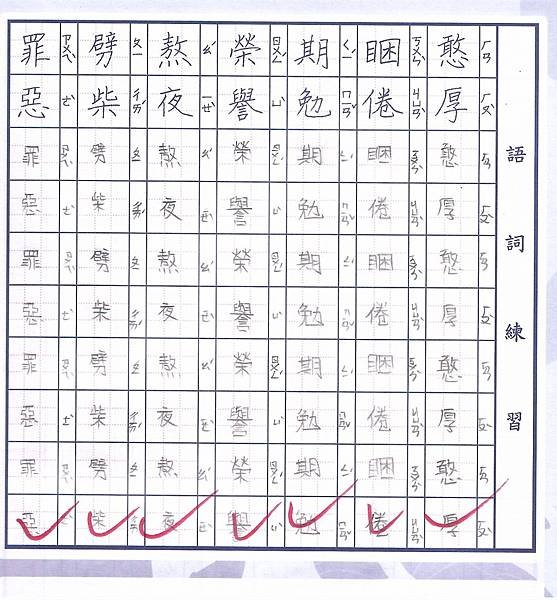 語詞練習
憨厚憨厚憨厚憨厚憨厚
ㄏㄢ ㄏㄡˋ
睏倦睏倦睏倦睏倦睏倦
ㄎㄨㄣˋ ㄐㄩㄢˋ
期勉期勉期勉期勉期勉
ㄑㄧˊ ㄇㄧㄢˇ
榮譽榮譽榮譽榮譽榮譽
ㄖㄨㄥˊ ㄩˋ
熬夜熬夜熬夜熬夜熬夜
ㄠˊ ㄧㄝˋ
劈柴劈柴劈柴劈柴劈柴
ㄆㄧ ㄔㄞˊ
罪惡罪惡罪惡罪惡罪惡
ㄗㄨㄟˋ ㄜˋ